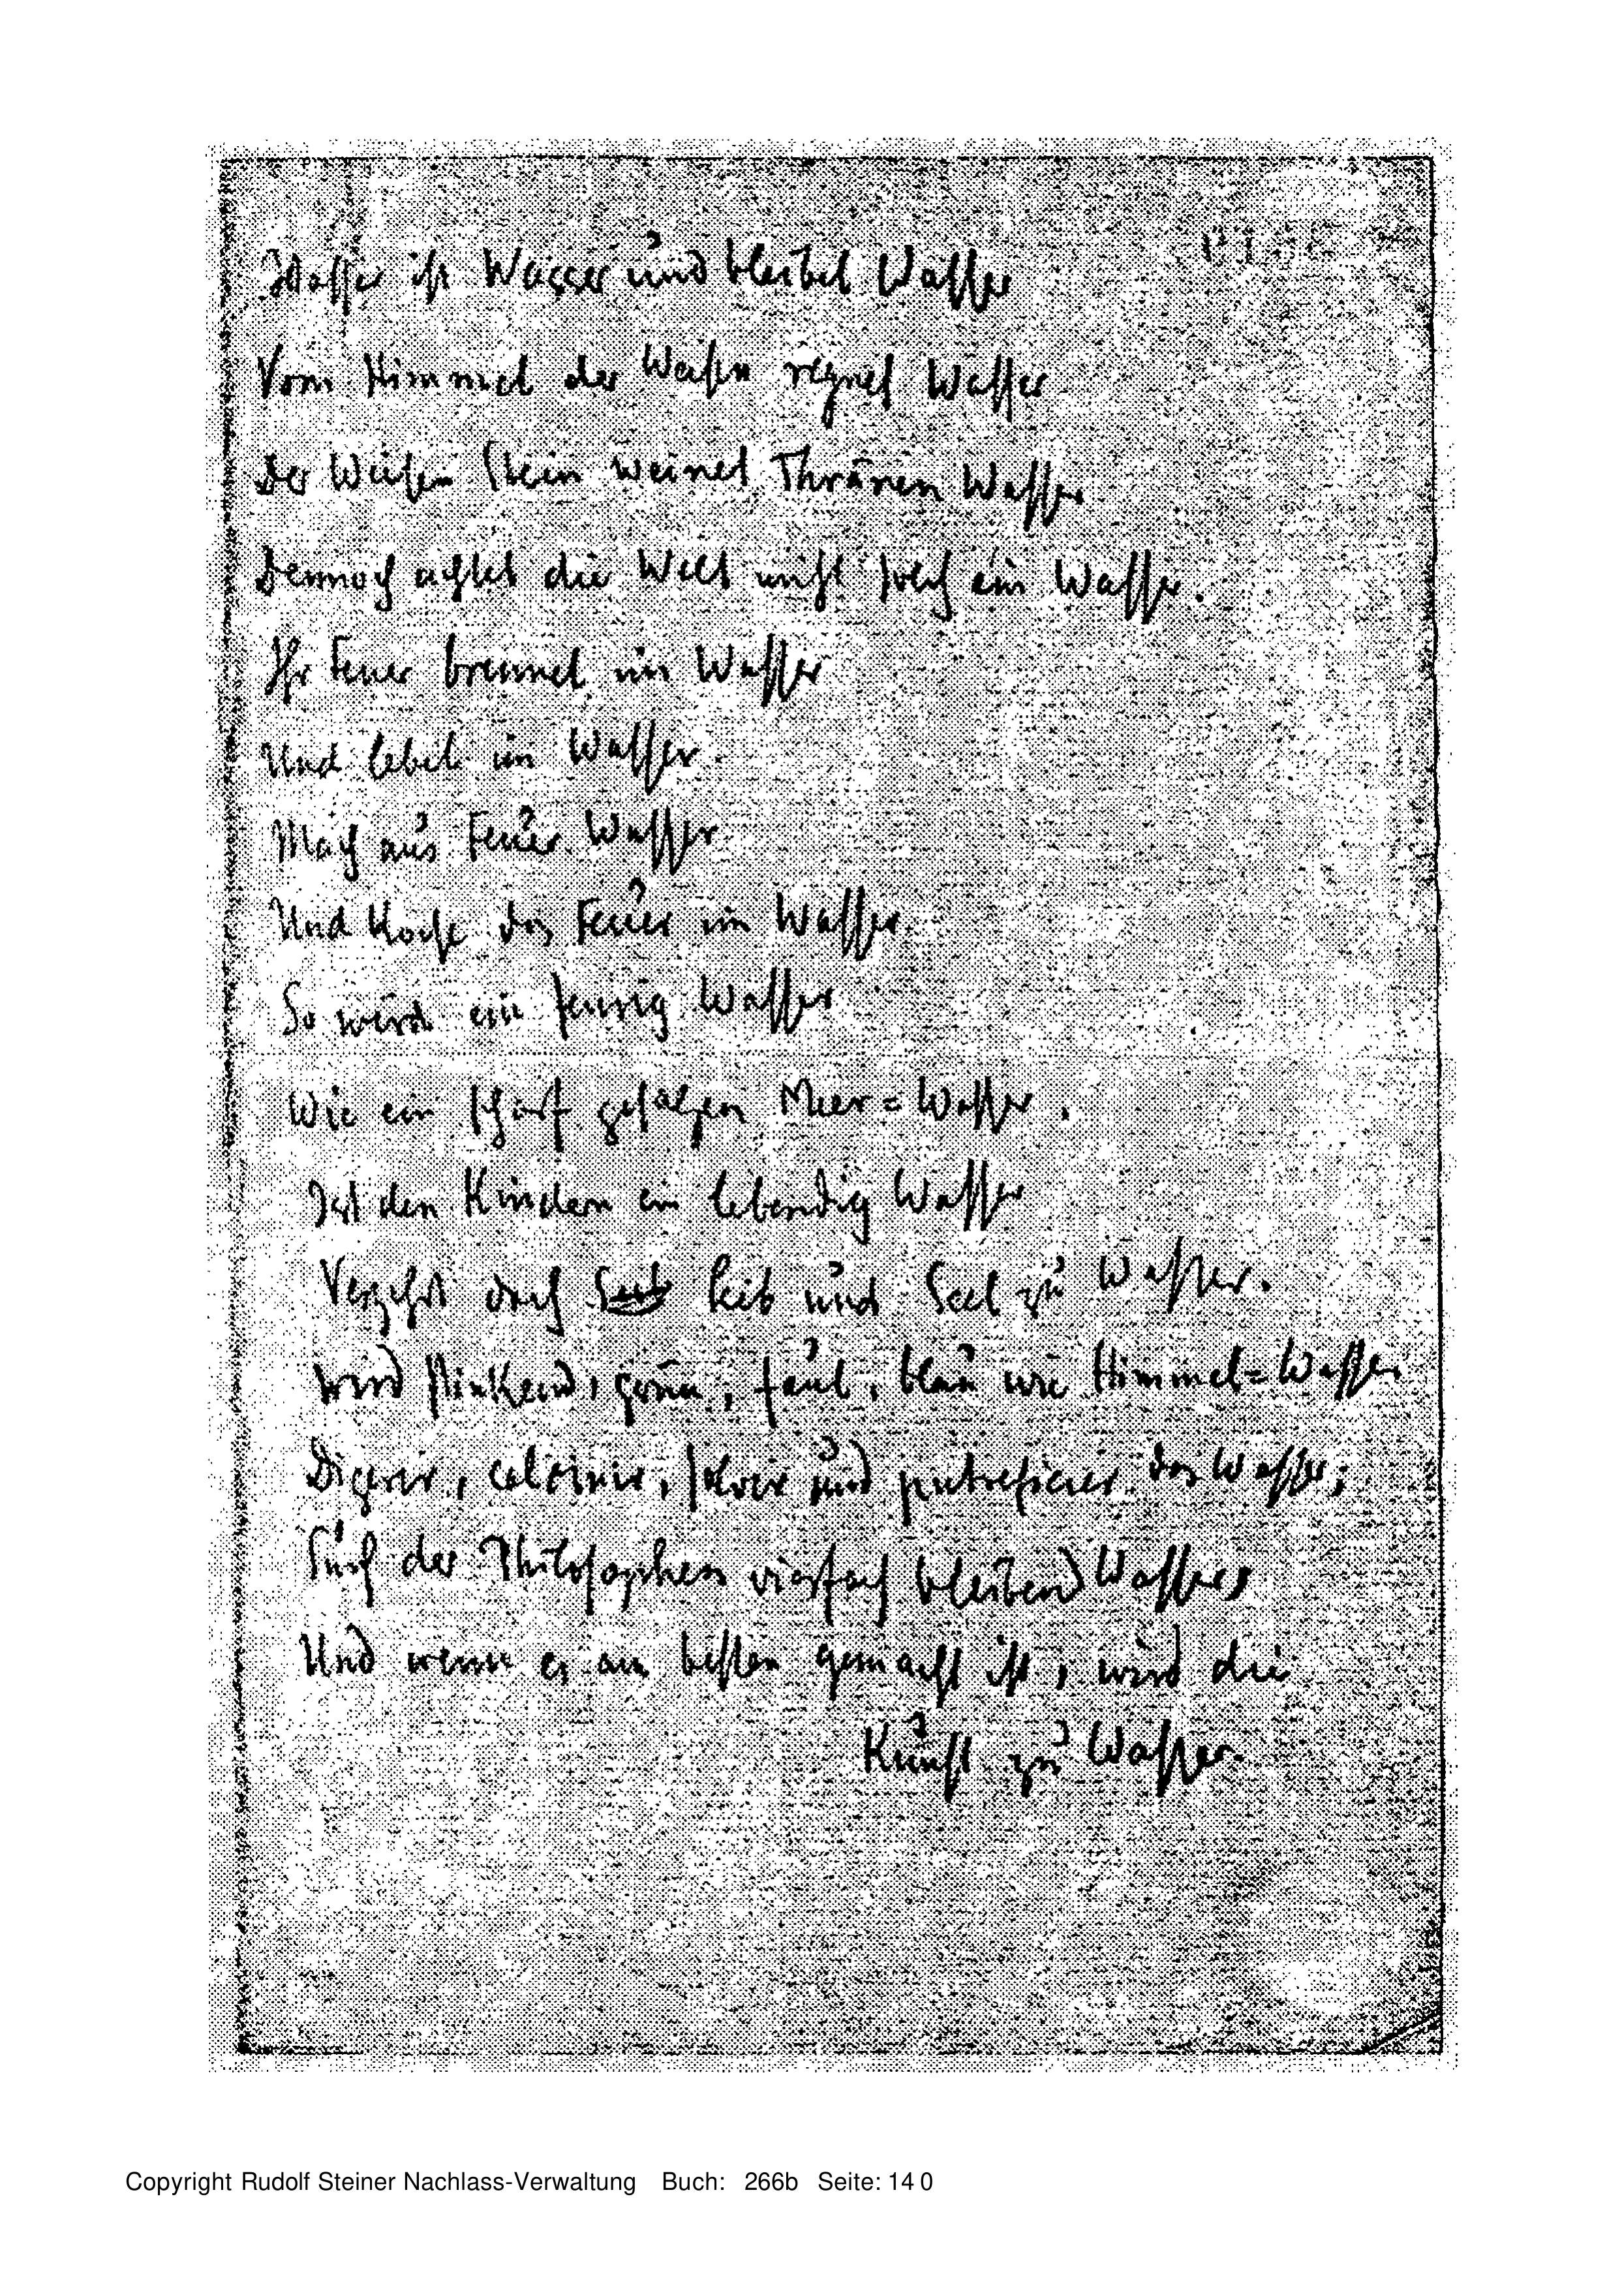 Wasser ist Wasser und bleibet Wasser
Vom Himmel der Weisen regnet Wasser
Der Weisen Stein weinet Thränen Wasser
Dennoch achtet die Welt nicht solch ein Wasser.
Ihr Feuer brennet im Wasser
Und lebet im Wasser.
Mach aus Feuer Wasser
Und Koche das Feuer im Wasser.
So wird ein feurig Wasser
Wie ein scharf gesalzen Meer=Wasser.
Ist den Kindern ein lebendig Wasser
Verzehrt doch Leib und Seel zu Wasser.
Wird stinkend, grün, faul, blau wie Himmel=Wasser
Digerir, calcinir, solvir und putreficier das Wasser;
Such der Philosophen vierfach bleibend Wasser
Und wenn es am besten gemacht ist, wird die
Kunst zu Wasser.
Copyright Rudolf Steiner Nachlass-Verwaltung Buch: 266b Seite: 140